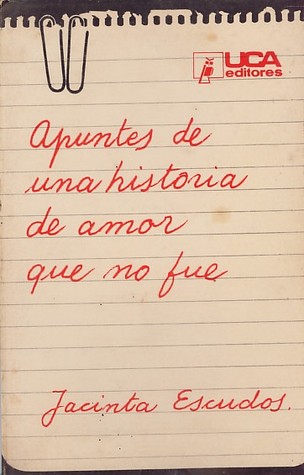 UCA
editores
Apuntes de
una historia
de amor
que no fue
Jacinta Escudos.